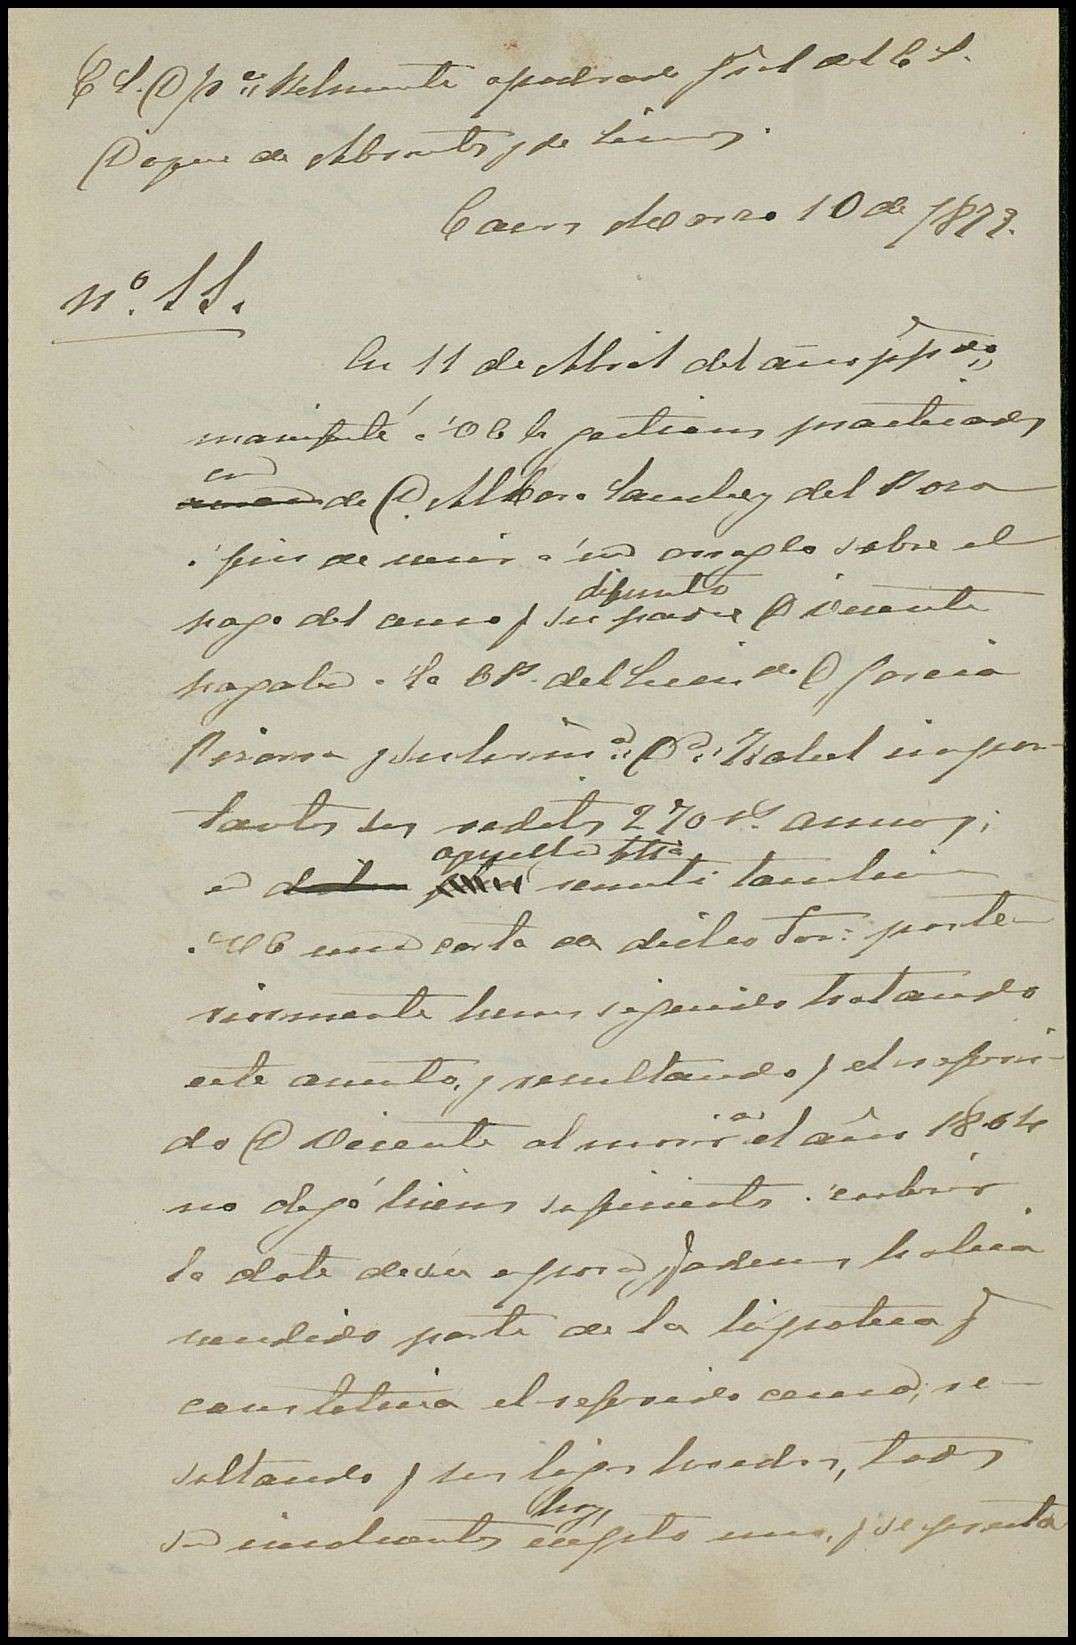 E S. D
apoderado gral del E S.
Duque de Abrantes y de Linares.
Caceres Enero 10 de 1872.
nº. 11.
En 11 de Abril del año ppdo
manifesté á VE las gestiones practicadas
en de D. Alvaro Sanchez del Pozo
á fin de venir á un arreglo sobre el
pago del censo q su difunto padre D Vicente
pagaba á la del de D Garcia
y su herma Dª Isabel impor-
tantes sus reditos 270 rs. annos;
en aquella fha remiti tambien
á VE una carta de dicho Sor: poste-
riormente hemos seguido tratando
este asunto, y resultando q el referi-
do D Vicente al morir en el año 1864
no dejó bienes suficientes á cubrir
la dote de su esposa, q ademas habia
vendido parte de la hipoteca q
constituia el referido censo, re-
sultando q sus hijos herederos, todos
son insolventes hoy, excepto uno, q se presenta